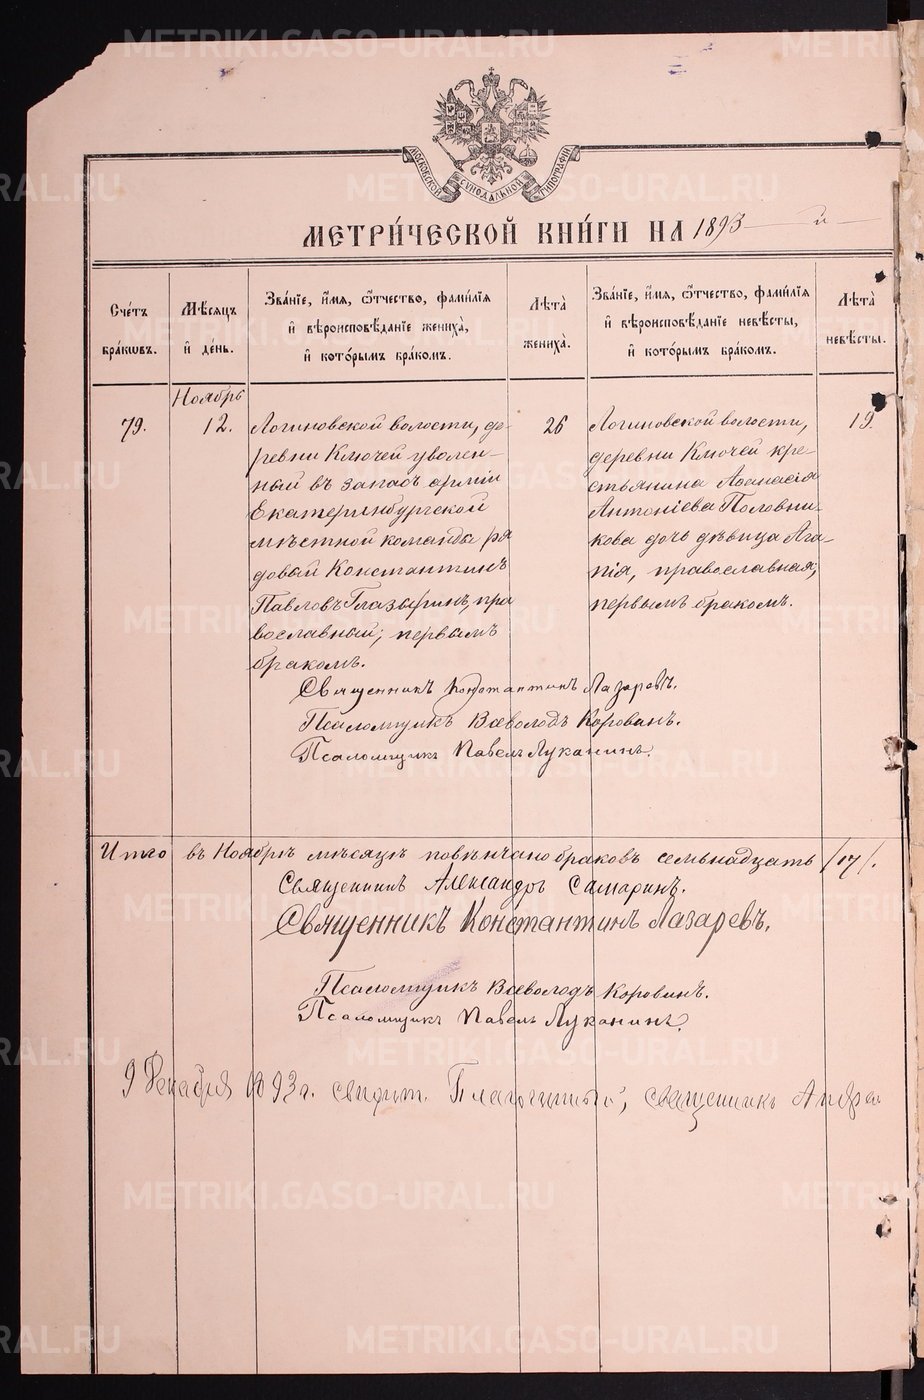 МОСКОВСКОЙ СѴНОДАЛЬНОЙ ТИПОГРАФІИ
МЕТРИ́ЧЕСКОЙ КНИ́ГИ НА 1893 й
Сче́тъ бра́кωвъ.
Мѣ́сяцъ и҆ де́нь.
Зва́нїе, и҆́мя, ѻ҆́тчество, фами́лїя и҆ вѣроисповѣ́данїе жениха̀, и҆ кото́рымъ бра́комъ.
Лѣта̀ жениха̀.
Зва́нїе, и҆́мя, ѻ҆́тчество, фами́лїя и҆ вѣроисповѣ́данїе невѣ́сты, и҆ кото́рымъ бра́комъ.
Лѣта̀ невѣ́сты.
Ноябрь
79.
12.
Логиновской волости, де-
ревни Ключей уволен-
ный въ запасъ арміи
Екатеринбургской
мѣстной команды ря
довый Константинъ
Павловъ Глазыринъ, пра
вославный; первымъ
бракомъ.
26
Логиновской волости,
деревни Ключей кре-
стьянина Аѳанасія
Антоніева Половни-
кова дочь дѣвица Ага-
пія, православная;
первымъ бракомъ.
19.
Священникъ Константинъ Лазаревъ.
Псаломщикъ Всеволодъ Коровинъ.
Псаломщикъ Павелъ Луканинъ.
Итого въ Ноябрѣ мѣсяцѣ повѣнчано браковъ семьнадцать /17/.
Священникъ Александръ Самаринъ.
Священникъ Константинъ Лазаревъ.
Псаломщикъ Всеволодъ Коровинъ.
Псаломщикъ Павелъ Луканинъ.
9 Декабря 1893 г. свидѣт. Благочинный, священникъ Андрей
METRIKI.GASO-URAL.RU